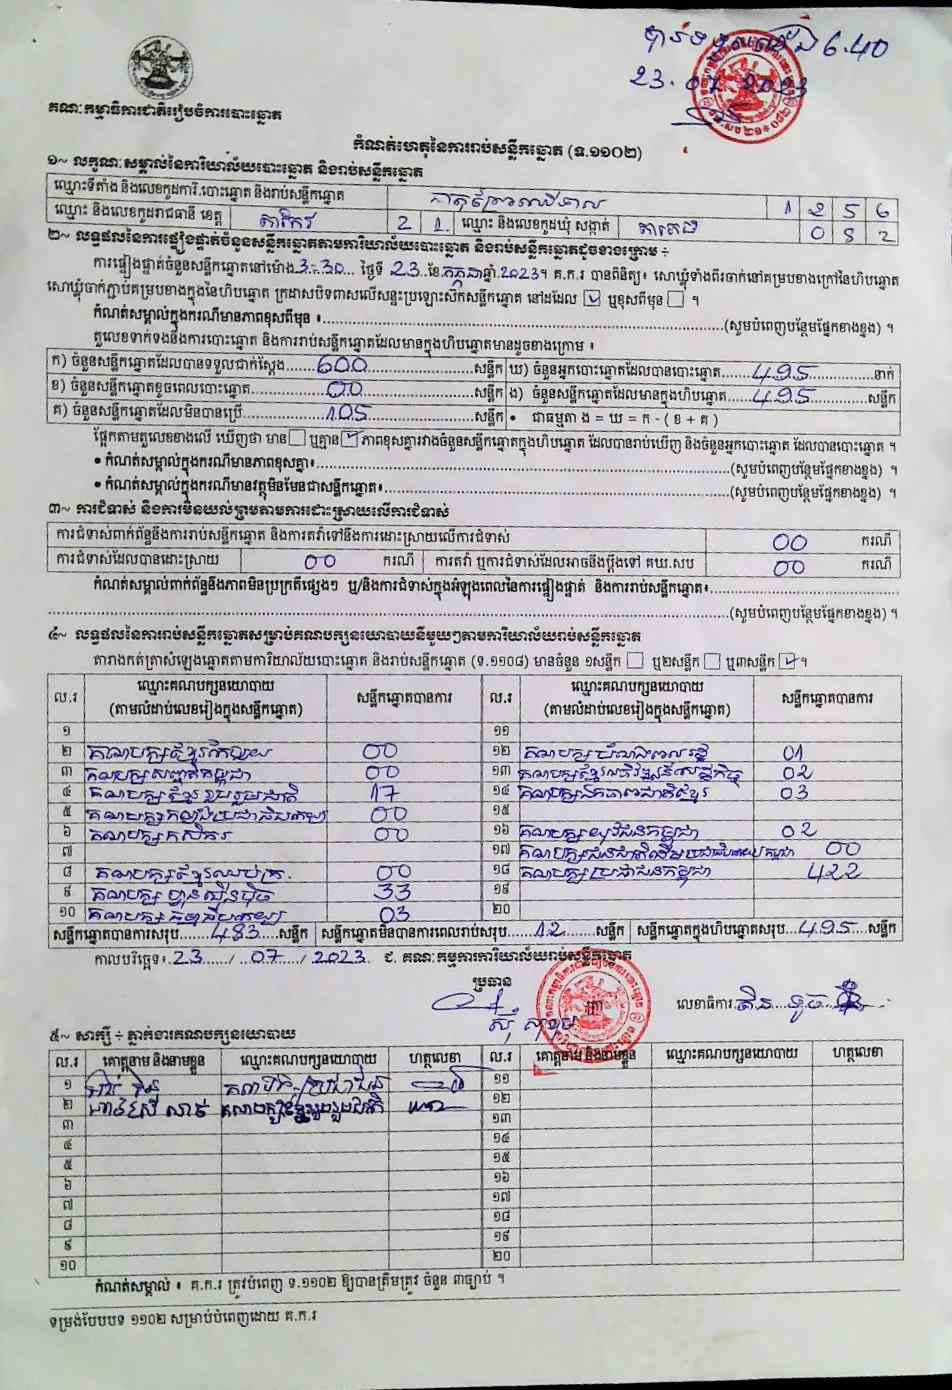 6.40
23.07.2023
គណៈកម្មាធិការជាតិរៀបចំការបោះឆ្នោត
កំណត់ហេតុនៃការរាប់សន្លឹកឆ្នោត (ទ.១១០២)
១~ លក្ខណៈសម្គាល់នៃការិយាល័យបោះឆ្នោត និងរាប់សន្លឹកឆ្នោត
ឈ្មោះទីតាំង និងលេខកូដការិ.បោះឆ្នោត និងរាប់សន្លឹកឆ្នោត 1 2 5 6
ឈ្មោះ និងលេខកូដរាជធានី ខេត្ត តាកែវ 2 1 ឈ្មោះ និងលេខកូដឃុំ សង្កាត់ 0 5 2
២~ លទ្ធផលនៃការផ្ទៀងផ្ទាត់ចំនួនសន្លឹកឆ្នោតតាមការិយាល័យបោះឆ្នោត និងរាប់សន្លឹកឆ្នោតដូចខាងក្រោម ÷
ការផ្ទៀងផ្ទាត់ចំនួនសន្លឹកឆ្នោតនៅម៉ោង 3:30 ថ្ងៃទី 23 ខែ កក្កដា ឆ្នាំ 2023។ គ.ក.រ បានពិនិត្យ៖ សោឃ្លុំទាំងពីរចាក់នៅគម្របខាងក្រៅនៃហិបឆ្នោត
សោឃ្លុំចាក់ភ្ជាប់គម្របខាងក្នុងនៃហិបឆ្នោត ក្រដាសបិទពាសលើសន្ទះប្រឡោះស៊កសន្លឹកឆ្នោត នៅដដែល ☑ ឬខុសពីមុន ☐ ។
កំណត់សម្គាល់ក្នុងករណីមានភាពខុសពីមុន ៖..........(សូមបំពេញបន្ថែមផ្នែកខាងខ្នង) ។
តួលេខទាក់ទងនឹងការបោះឆ្នោត និងការរាប់សន្លឹកឆ្នោតដែលមានក្នុងហិបឆ្នោតមានដូចខាងក្រោម ៖
ក) ចំនួនសន្លឹកឆ្នោតដែលបានទទួលជាក់ស្តែង 600 សន្លឹក ឃ) ចំនួនអ្នកបោះឆ្នោតដែលបានបោះឆ្នោត 495 នាក់
ខ) ចំនួនសន្លឹកឆ្នោតខូចពេលបោះឆ្នោត 00 សន្លឹក ង) ចំនួនសន្លឹកឆ្នោតដែលមានក្នុងហិបឆ្នោត 495 សន្លឹក
គ) ចំនួនសន្លឹកឆ្នោតដែលមិនបានប្រើ 105 សន្លឹក • ជាធម្មតា ង = ឃ = ក - ( ខ + គ )
ផ្អែកតាមតួលេខខាងលើ ឃើញថា មាន ☐ ឬគ្មាន ☑ ភាពខុសគ្នារវាងចំនួនសន្លឹកឆ្នោតក្នុងហិបឆ្នោត ដែលបានរាប់ឃើញ និងចំនួនអ្នកបោះឆ្នោត ដែលបានបោះឆ្នោត ។
• កំណត់សម្គាល់ក្នុងករណីមានភាពខុសគ្នា៖..........(សូមបំពេញបន្ថែមផ្នែកខាងខ្នង) ។
• កំណត់សម្គាល់ក្នុងករណីមានវត្ថុមិនមែនជាសន្លឹកឆ្នោត៖..........(សូមបំពេញបន្ថែមផ្នែកខាងខ្នង) ។
៣~ ការជំទាស់ និងការមិនយល់ព្រមតាមការដោះស្រាយលើការជំទាស់
ការជំទាស់ពាក់ព័ន្ធនឹងការរាប់សន្លឹកឆ្នោត និងការតវ៉ាទៅនឹងការដោះស្រាយលើការជំទាស់ 00 ករណី
ការជំទាស់ដែលបានដោះស្រាយ 00 ករណី ការតវ៉ា ឬការជំទាស់ដែលអាចនឹងប្តឹងទៅ គឃ.សប 00 ករណី
កំណត់សម្គាល់ពាក់ព័ន្ធនឹងភាពមិនប្រក្រតីផ្សេងៗ ឬ/និងការជំទាស់ក្នុងអំឡុងពេលនៃការផ្ទៀងផ្ទាត់ និងការរាប់សន្លឹកឆ្នោត៖..........
..........(សូមបំពេញបន្ថែមផ្នែកខាងខ្នង) ។
៤~ លទ្ធផលនៃការរាប់សន្លឹកឆ្នោតសម្រាប់គណបក្សនយោបាយនីមួយៗតាមការិយាល័យរាប់សន្លឹកឆ្នោត
តារាងកត់ត្រាសំឡេងឆ្នោតតាមការិយាល័យបោះឆ្នោត និងរាប់សន្លឹកឆ្នោត (ទ.១១០៨) មានចំនួន ១សន្លឹក ☐ ឬ២សន្លឹក ☐ ឬ៣សន្លឹក ☑ ។
ល.រ ឈ្មោះគណបក្សនយោបាយ (តាមលំដាប់លេខរៀងក្នុងសន្លឹកឆ្នោត) សន្លឹកឆ្នោតបានការ ល.រ ឈ្មោះគណបក្សនយោបាយ (តាមលំដាប់លេខរៀងក្នុងសន្លឹកឆ្នោត) សន្លឹកឆ្នោតបានការ
១ ១១
២ 00 ១២ 01
៣ គណបក្សសញ្ជាតិកម្ពុជា 00 ១៣ គណបក្សខ្មែរអភិវឌ្ឍន៍សេដ្ឋកិច្ច 02
៤ គណបក្សខ្មែររួបរួមជាតិ 17 ១៤ គណបក្សឯកភាពជាតិខ្មែរ 03
៥ 00 ១៥
៦ គណបក្សកសិករ 00 ១៦ គណបក្សយុវជនកម្ពុជា 02
៧ ១៧ គណបក្សជនជាតិដើមប្រជាធិបតេយ្យកម្ពុជា 00
៨ គណបក្សខ្មែរឈប់ក្រ 00 ១៨ គណបក្សប្រជាជនកម្ពុជា 422
៩ គណបក្សហ្វ៊ុនស៊ិនប៉ិច 33 ១៩
១០ 03 ២០
សន្លឹកឆ្នោតបានការសរុប 483 សន្លឹក សន្លឹកឆ្នោតមិនបានការពេលរាប់សរុប 12 សន្លឹក សន្លឹកឆ្នោតក្នុងហិបឆ្នោតសរុប 495 សន្លឹក
កាលបរិច្ឆេទ៖ 23 / 07 / 2023 ជ. គណៈកម្មការការិយាល័យរាប់សន្លឹកឆ្នោត
ប្រធាន
លេខាធិការ
៥~ សាក្សី ÷ ភ្នាក់ងារគណបក្សនយោបាយ
ល.រ គោត្តនាម និងនាមខ្លួន ឈ្មោះគណបក្សនយោបាយ ហត្ថលេខា ល.រ គោត្តនាម និងនាមខ្លួន ឈ្មោះគណបក្សនយោបាយ ហត្ថលេខា
១ ១១
២ ១២
៣ ១៣
៤ ១៤
៥ ១៥
៦ ១៦
៧ ១៧
៨ ១៨
៩ ១៩
១០ ២០
កំណត់សម្គាល់ ៖ គ.ក.រ ត្រូវបំពេញ ទ.១១០២ ឱ្យបានត្រឹមត្រូវ ចំនួន ៣ច្បាប់ ។
ទម្រង់បែបបទ ១១០២ សម្រាប់បំពេញដោយ គ.ក.រ